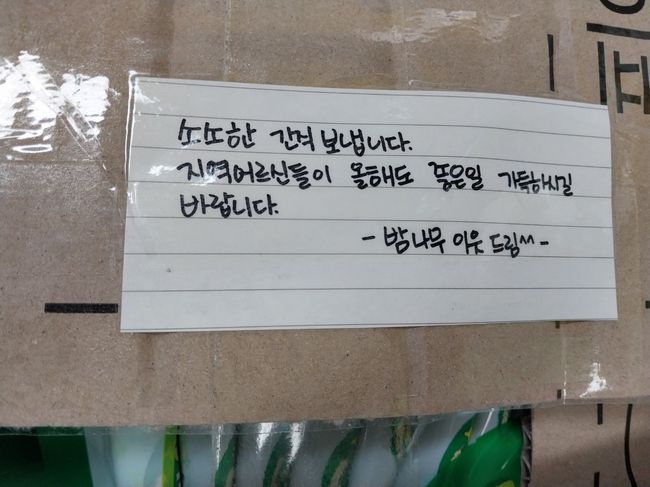 소소한 간격 보냅니다.
지역어르신들이 올해도 좋은일 가득하시길
바랍니다.
- 밤나무 이웃 드림^^ -